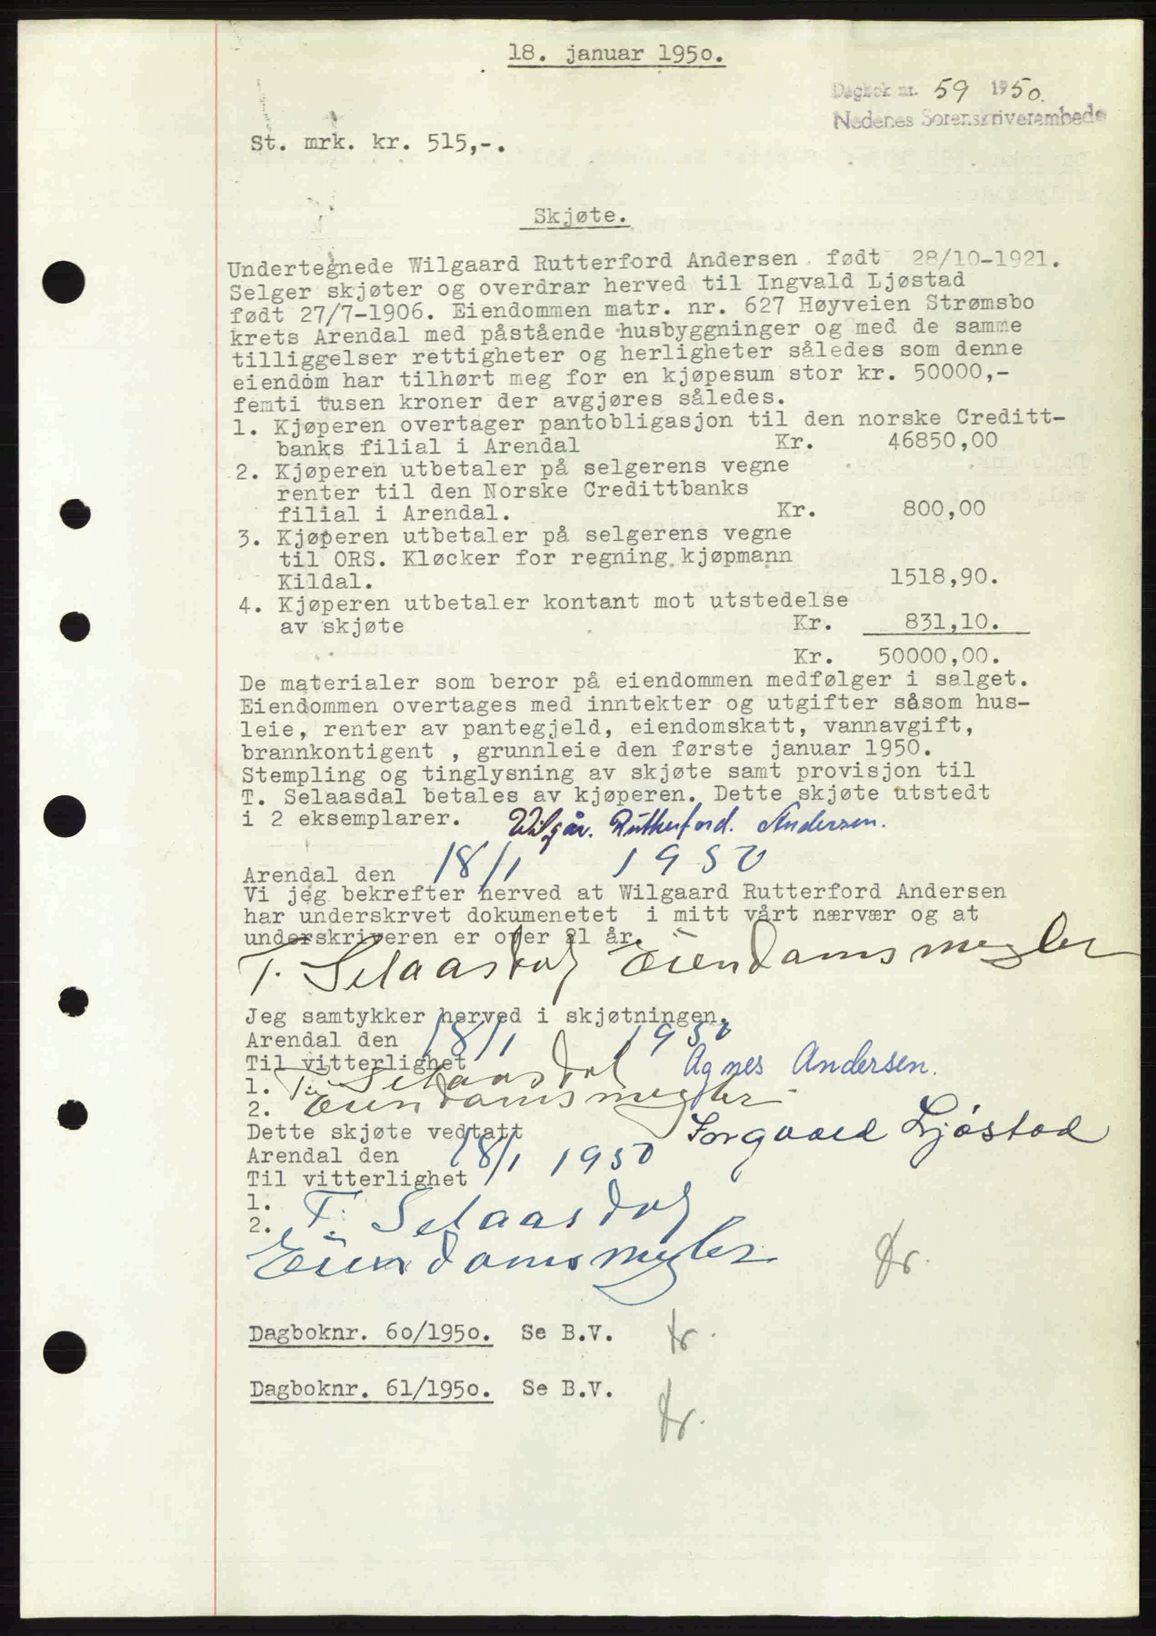 18. januar 1950.
Dagbok nr. 59 1950.
Nedenes Sorenskriverembede
St. mrk. kr. 515,-.
Skjøte.
Undertegnede Wilgaard Rutterford Andersen født 28/10-1921.
Selger skjøter og overdrar herved til Ingvald Ljøstad
født 27/7-1906. Eiendommen matr. nr. 627 Høyveien Strømsbo
krets Arendal med påstående husbyggninger og med de samme
tilliggelser rettigheter og herligheter således som denne
eiendom har tilhørt meg for en kjøpesum stor kr. 50000,-
femti tusen kroner der avgjøres således.
1. Kjøperen overtager pantobligasjon til den norske Creditt-
banks filial i Arendal Kr. 46850,00
2. Kjøperen utbetaler på selgerens vegne
renter til den Norske Credittbanks
filial i Arendal. Kr. 800,00
3. Kjøperen utbetaler på selgerens vegne
til ORS. Kløcker for regning kjøpmann
Kildal. 1518,90.
4. Kjøperen utbetaler kontant mot utstedelse
av skjøte Kr. 831,10.
Kr. 50000,00.
De materialer som beror på eiendommen medfølger i salget.
Eiendommen overtages med inntekter og utgifter såsom hus-
leie, renter av pantegjeld, eiendomskatt, vannavgift,
brannkontigent , grunnleie den første januar 1950.
Stempling og tinglysning av skjøte samt provisjon til
T. Selaasdal betales av kjøperen. Dette skjøte utstedt
i 2 eksemplarer. Wilgår. Rutherford. Andersen.
Arendal den 18/1 1950
Vi jeg bekrefter herved at Wilgaard Rutterford Andersen
har underskrvet dokumenetet i mitt vårt nærvær og at
underskriveren er over 21 år.
T. Selaasdal Eiendomsmegler
Jeg samtykker herved i skjøtningen.
Arendal den 18/1 1950
Til vitterlighet Agnes Andersen.
1. T. Selaasdal
2. Eiendomsmegler
Dette skjøte vedtatt Ingvald Ljøstad
Arendal den 18/1 1950
Til vitterlighet
1. T. Selaasdal
2.
Eiendomsmegler
Dagboknr. 60/1950. Se B.V.
Dagboknr. 61/1950. Se B.V.